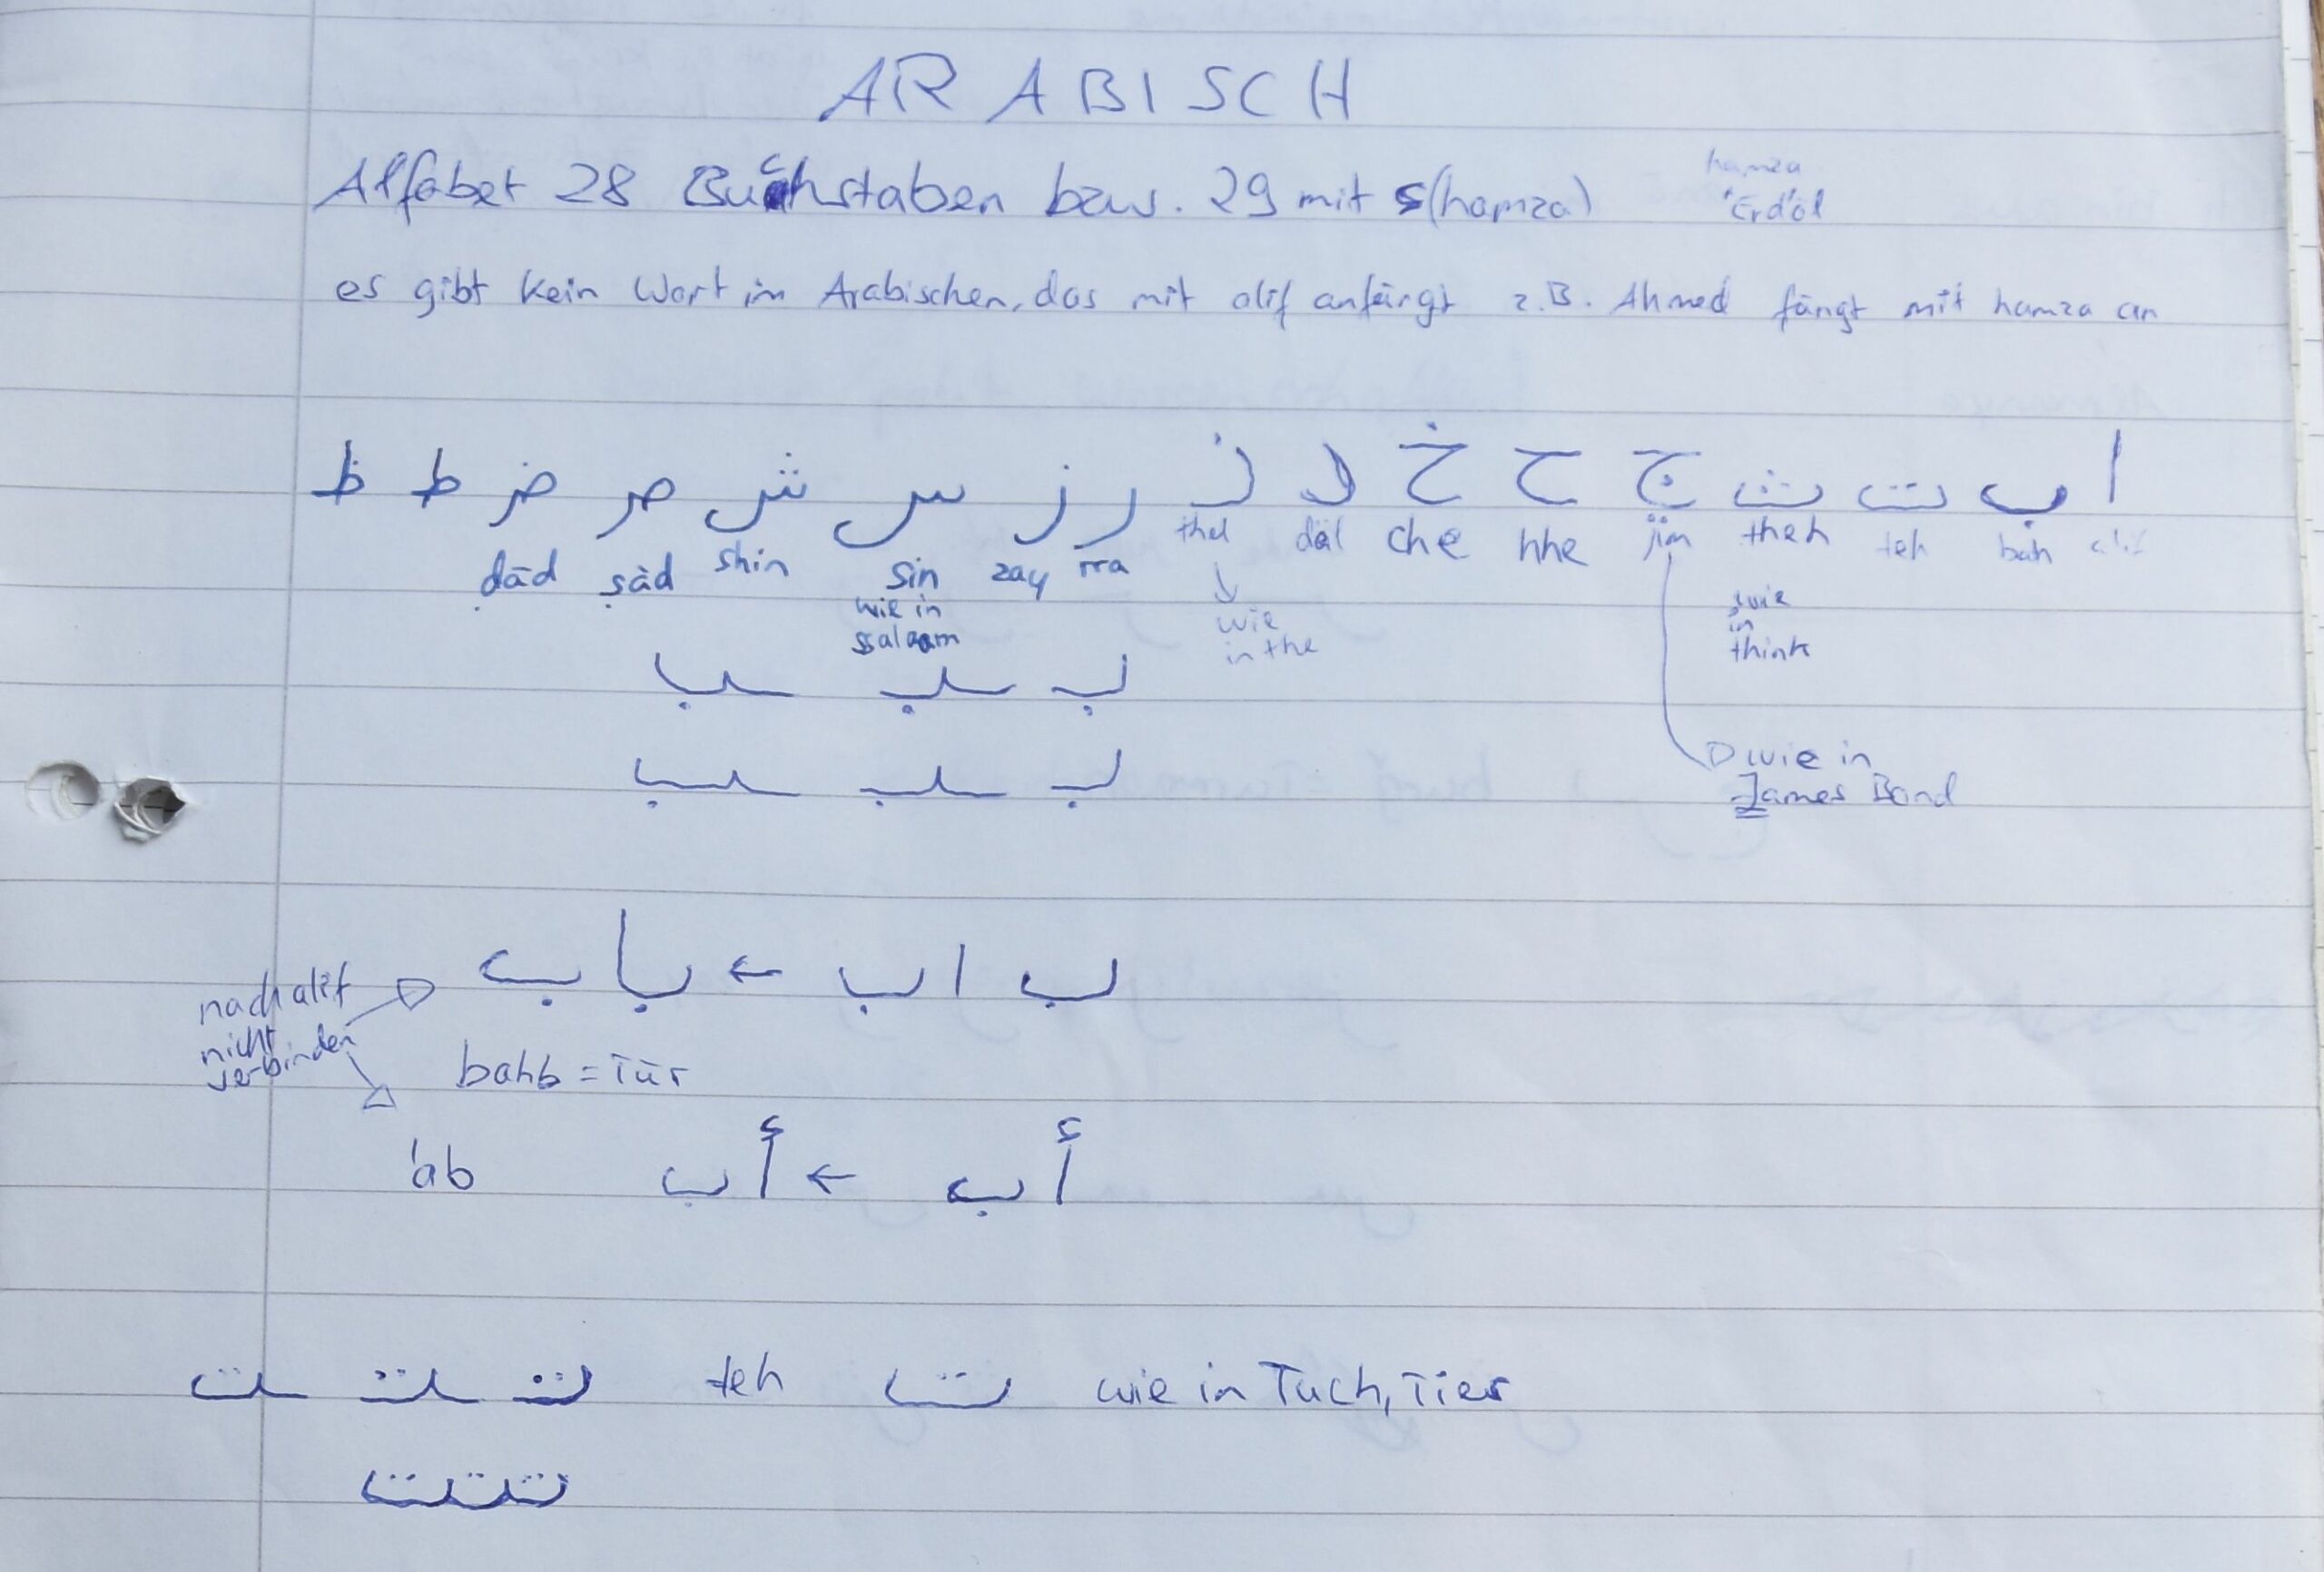 ARABISCH
Alfabet 28 Buchstaben bzw. 29 mit ء (hamza)
hamza
'Erd'öl
es gibt kein Wort im Arabischen, das mit alif anfängt z.B. Ahmed fängt mit hamza an
ا ب ت ث ج ح خ د ذ ر ز س ش ص ض ط ظ
alif bah teh theh jim hhe che däl thel rra zay sin shin ṣād ḍād
wie in think
wie in the
wie in ssalaam
بـ ـبـ ـب
wie in James Bond
بـ ـبـ ـب
ب ا ب ← باب
nach alif nicht verbinden
bahb = Tür
أ ب ← أب
'ab
تـ ـتـ ـت teh ت wie in Tuch, Tier
تتت